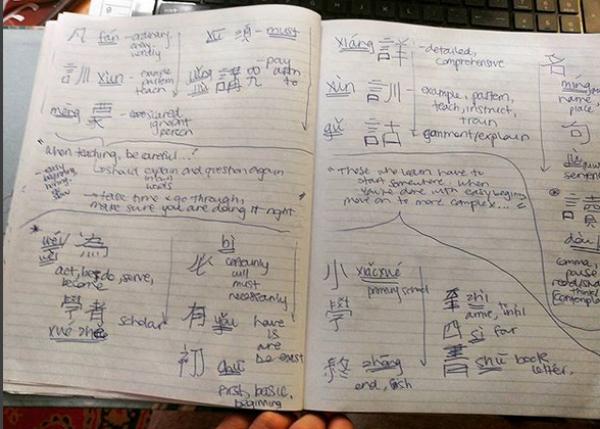 凡 fán - ordinary
worldly
訓 xùn - example
pattern
teach
méng 蒙 -
ignorant
person
xū 須 - must
講究 - pay
attn
to
"when teaching, be careful..."
should explain and question again
- early
learning
→ take time & go through,
make sure you are doing it right
*
wéi/
wèi 為
act, be, do, serve,
become
學者 scholar
xué zhě
bì
必 certainly
will
must
necessarily
有 yǒu have
is
are
be exist
初 chū
first, basic,
beginning
xiáng 詳 - detailed,
comprehensive
xùn 訓 - example, pattern,
teach, instruct,
train
gǔ 詁 - comment/explain
"Those who learn have to
start somewhere. When
you're done with easy/begin,
move on to more complex..."
小 xiǎoxué
學 primary school
終 zhōng
end, finish
至 zhì
arrive, until
四 sì four
書 shū book
letter,
名
míng
name,
place
句
sentence
*
讀
dòu
comma,
pause